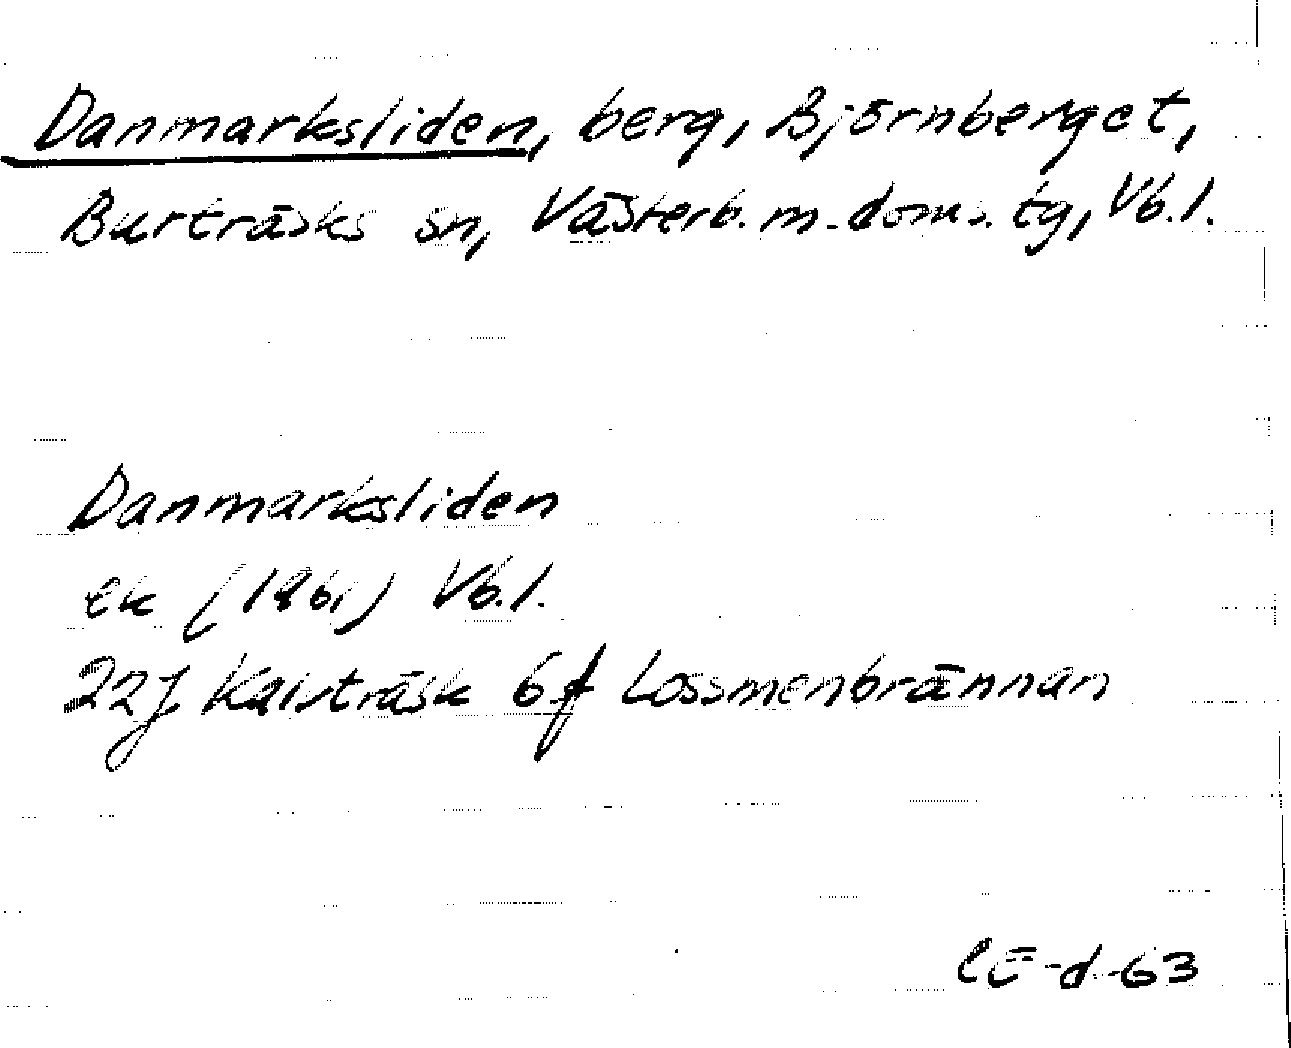 Danmarksliden, berg, Björnberget,
Burträsks sn, Västerb. m. doms. tg, Vb. l.
Danmarksliden
ek (1961) Vb. l.
22J Kalvträsk 6f Lossmenbrännan
CE-d-63